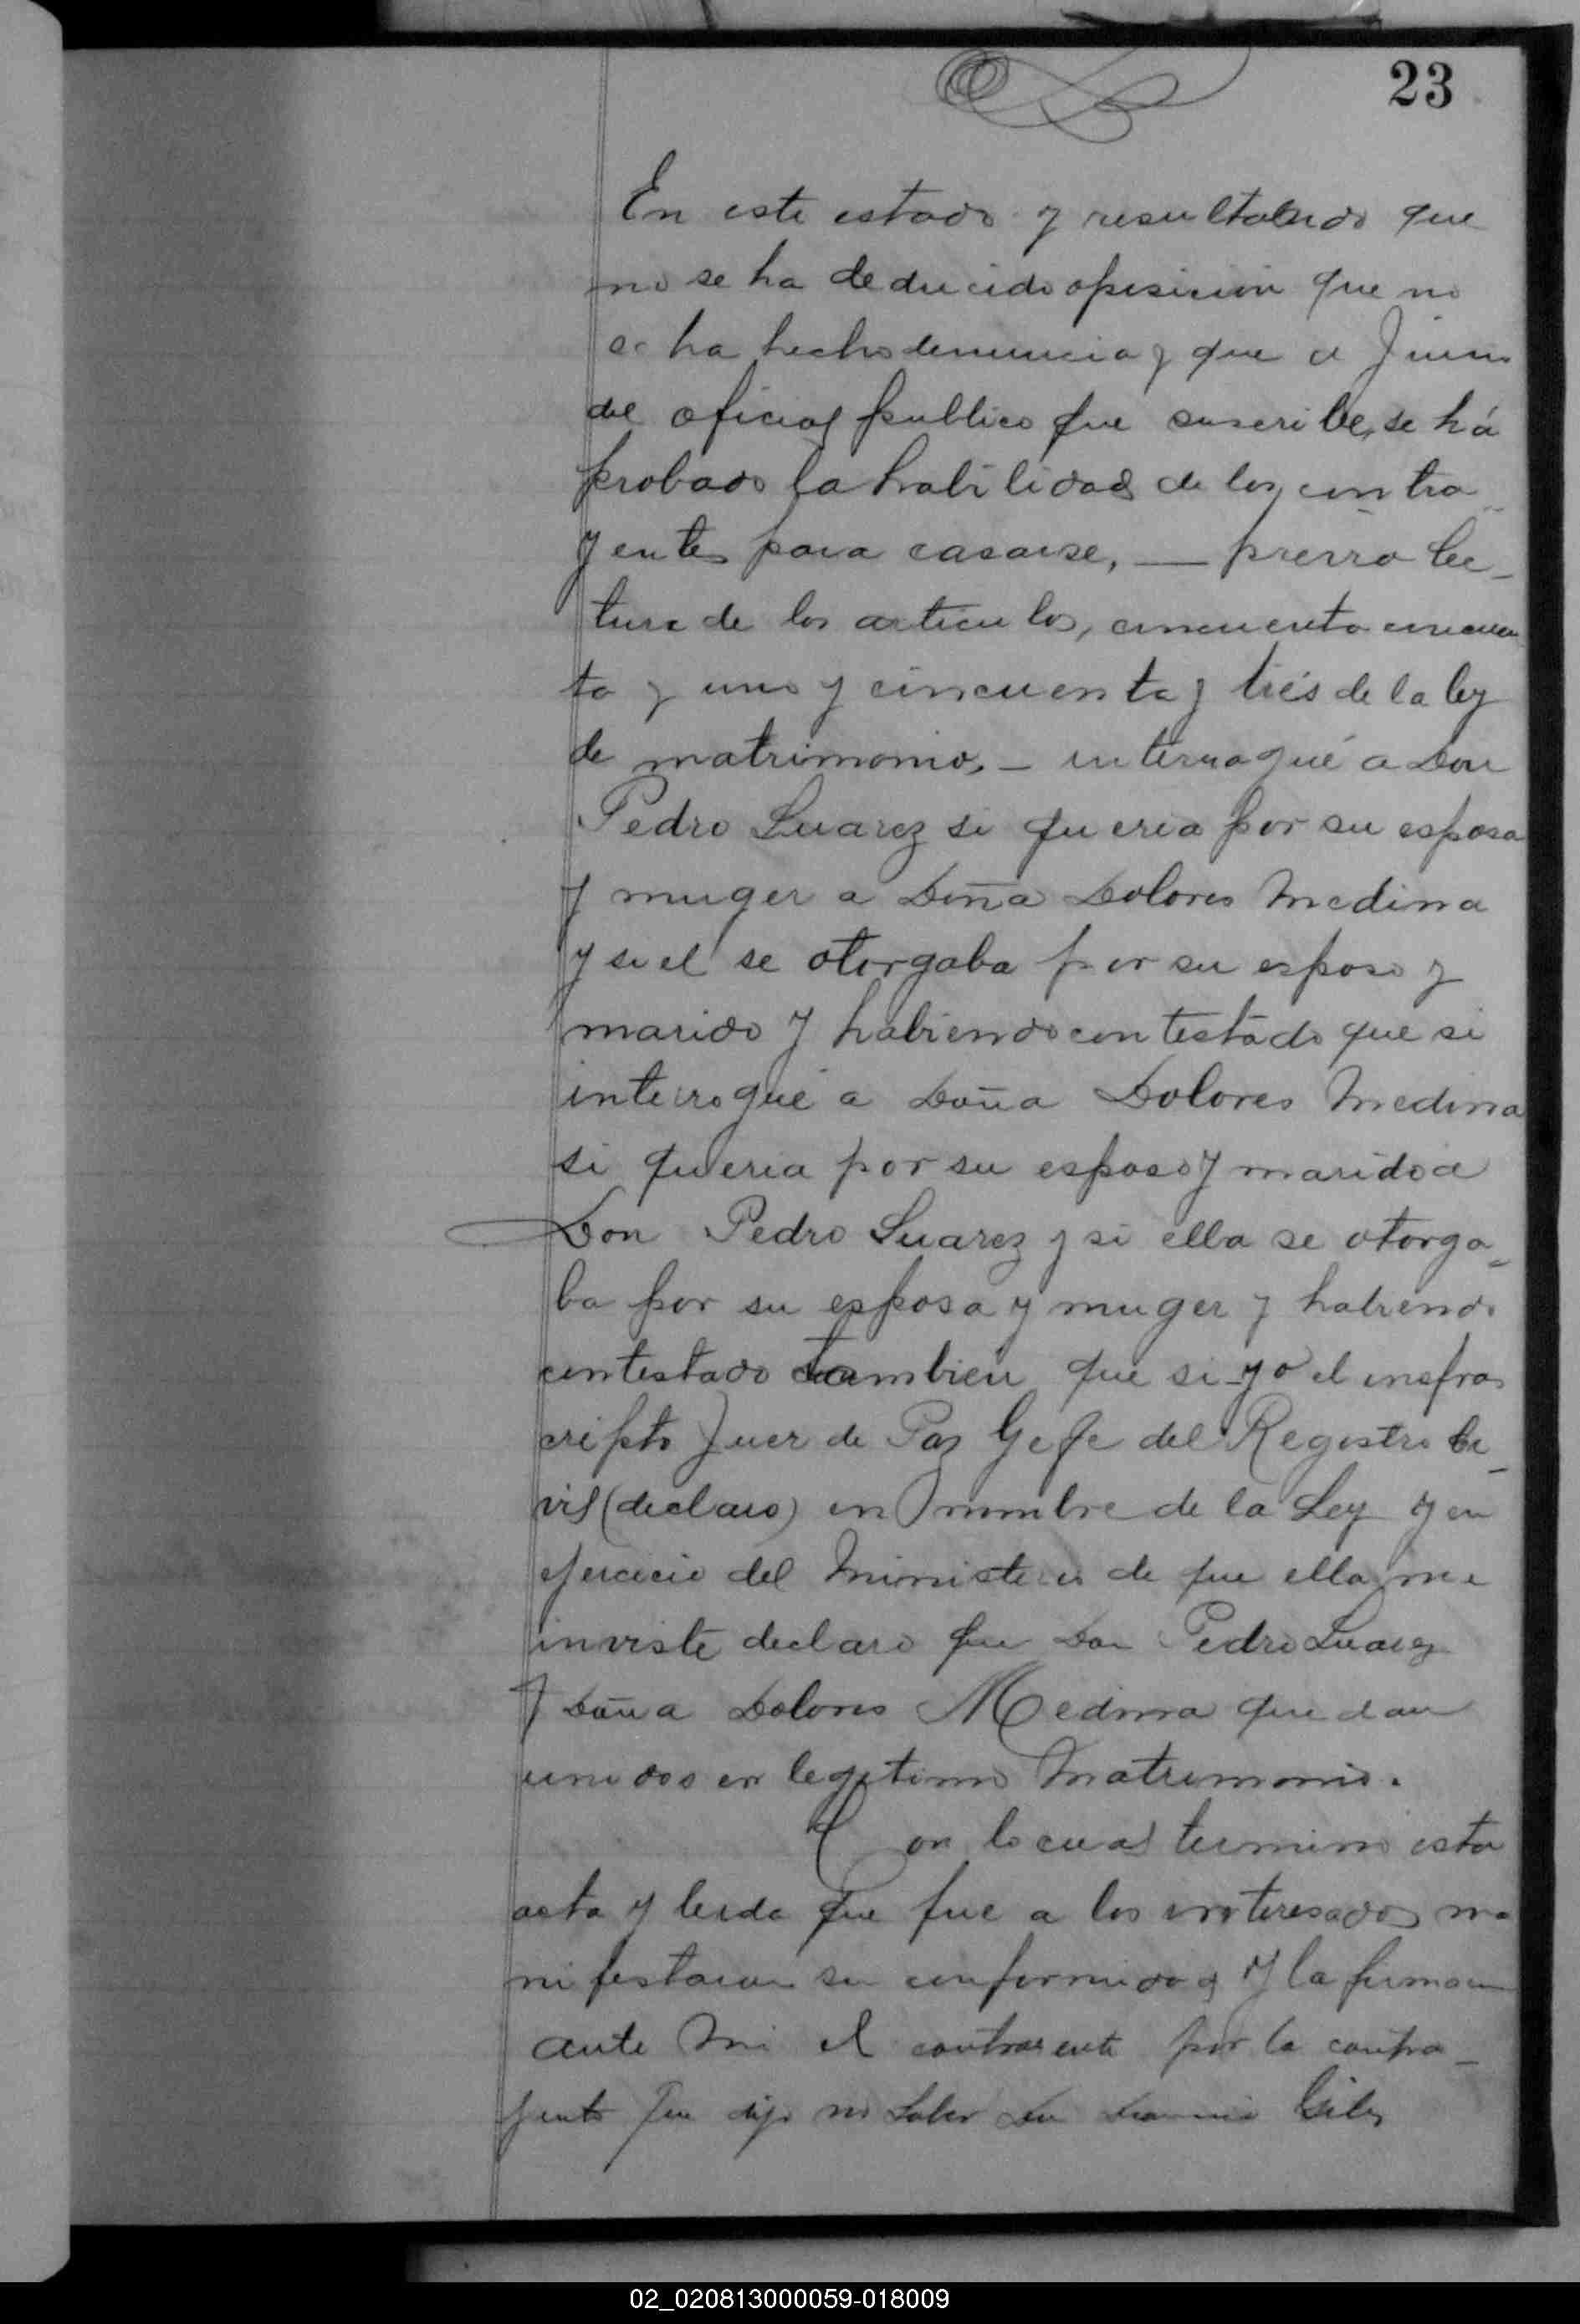 23
En este estado y resultando que
no se ha deducido oposicion que no
se ha hecho denuncia y que a Juicio
del oficial publico que suscribe, se há
probado la habilidad de los contra-
yentes para casarse, — previa lec-
tura de los articulos, cincuenta cincuen
ta y uno y cincuenta y trés de la ley
de matrimonio, — interrogué a Don
Pedro Suarez si queria por su esposa
y muger a Doña Dolores Medina
y si el se otorgaba por su esposo y
marido y habiendo contestado que si
interrogué a Doña Dolores Medina
si queria por su esposo y marido a
Don Pedro Suarez y si ella se otorga-
ba por su esposa y muger y habiendo
contestado tambien que si yo el infras
cripto Juez de Paz Gefe del Registro Ci-
vil (declaro) en nombre de la Ley y en
ejercicio del Ministerio de que ella me
inviste declaro que Don Pedro Suarez
y Doña Dolores Medina quedan
unidos en legitimo Matrimonio.
Con lo cual termino esta
acta y leida que fue a los interesados ma
nifestaron su conformidad y la firman
ante mi el contrayente por la contra-
yente que dijo no saber Don
02_020813000059-018009